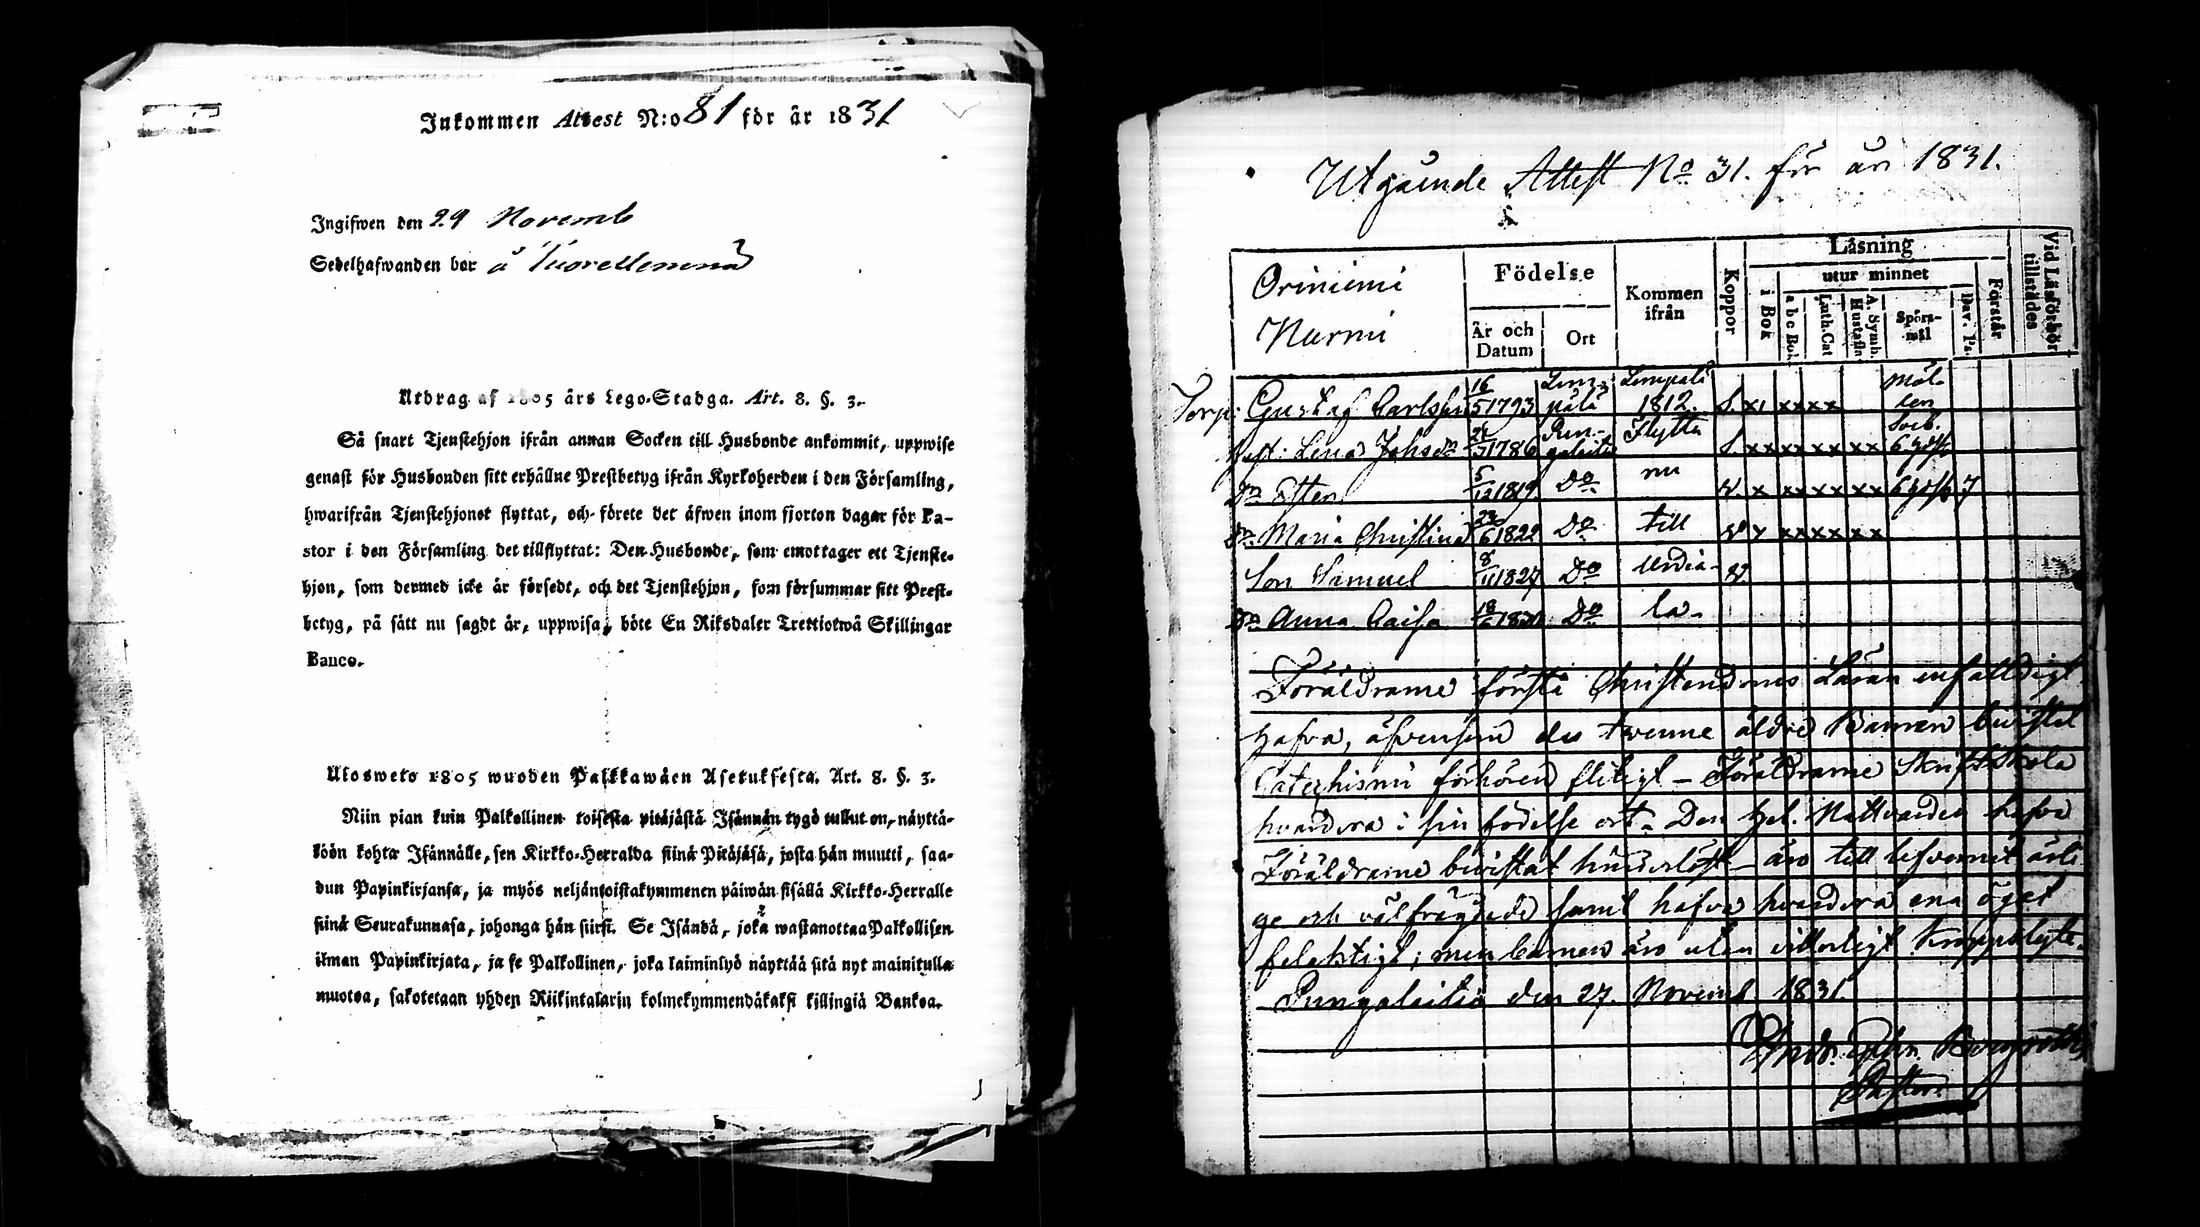 Inkommen Attest N:o 81 för år 1831
Ingifwen den 29 Novemb
Sedelhafwanden bor å
Utdrag af 1805 års Lego-Stadga. Art. 8. §. 3.
Så snart Tjenstehjon ifrån annan Socken till Husbonde ankommit, uppwise
genast för Husbonden sitt erhållne Prestbetyg ifrån Kyrkoherden i den Församling,
hwarifrån Tjenstehjonet flyttat, och förete det äfwen inom fjorton dagar för Pa-
stor i den Församling det tillflyttat: Den Husbonde, som emottager ett Tjenste-
hjon, som dermed icke är försedt, och det Tjenstehjon, som försummar sitt Prest-
betyg, på sätt nu sagdt är, uppwisa, böte En Riksdaler Trettiotwå Skillingar
Banco.
Ulosweto 1805 wuoden Palkkawäen Asetuksesta. Art. 8. §. 3.
Niin pian kuin Palkollinen toisesta pitäjästä Isännän tygö tullut on, näyttä-
köön kohta Isännälle, sen Kirkko-Herralda siinä Pitäjäsä, josta hän muutti, saa-
dun Papinkirjansa, ja myös neljäntoistakymmenen päiwän sisällä Kirkko-Herralle
siinä Seurakunnasa, johonga hän siirsi. Se Isändä, joka wastanottaa Palkollisen
ilman Papinkirjata, ja se Palkollinen, joka laiminlyö näyttää sitä nyt mainitulla
muotoa, sakotetaan yhden Riikintalarin kolmekymmendäkaksi killingiä Bankoa.
Utgående Attest No 31. för år 1831.
Oriniemi
Nurmi
Födelse
År och Datum
Ort
Kommen ifrån
Koppor
Läsning
i Bok
utur minnet
a b c Bok
Luth. Cat
A. Symb. Hustafla
Spörs-mål
Dav. Ps.
Förstår
Vid Läsförhör tillstädes
Torp: Gustaf Carlsson 16/5 1793 Lem-pälä Lempälä 1812. S.
Hust: Lena Johsdr 1786 Pun-galaitio Flytta S. xx xx xx xx
Dr 5/12 1819 Do nu
Dr Maria Christina 6 1822 Do till
Son Samuel 8/11 1827 Do Urdia-
Dr Anna Caisa Do la.
Föräldrarne förstå Christendoms Läran enfalldigt
hafva, äfvensom des tvenne äldre Barnen bevistat
Catechismi förhören flitigt – Föräldrarne Skriftskola
hvardera i sin födelse ort. Den Hel. Nattvarden hafva
Föräldrarne bevistat hinderlöst – äro till lefvernet ärli
ge och välfrägdade samt hafva hvardera ena ögat
felaktigt; men barnen äro utan vitterligt kropps lyte.
Pungalaitio den 27. Novemb 1831.
Pastor